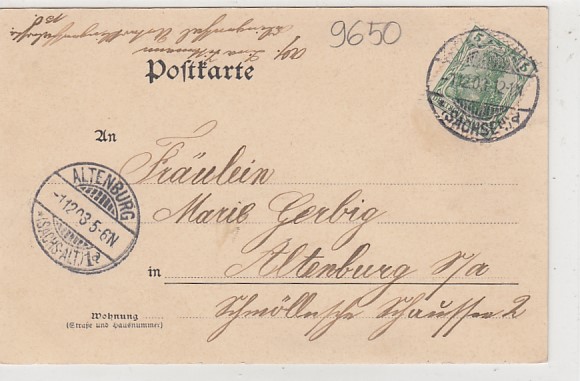 9650
Postkarte
An
Fräulein
Marie Gerbig
in Altenburg S/a
Schmöllnsche Chaussee 2
Wohnung
(Straße und Hausnummer)
ALTENBURG
-1.12.03.5-6N
*(SACHS-ALT.)1d
(SACHSEN)